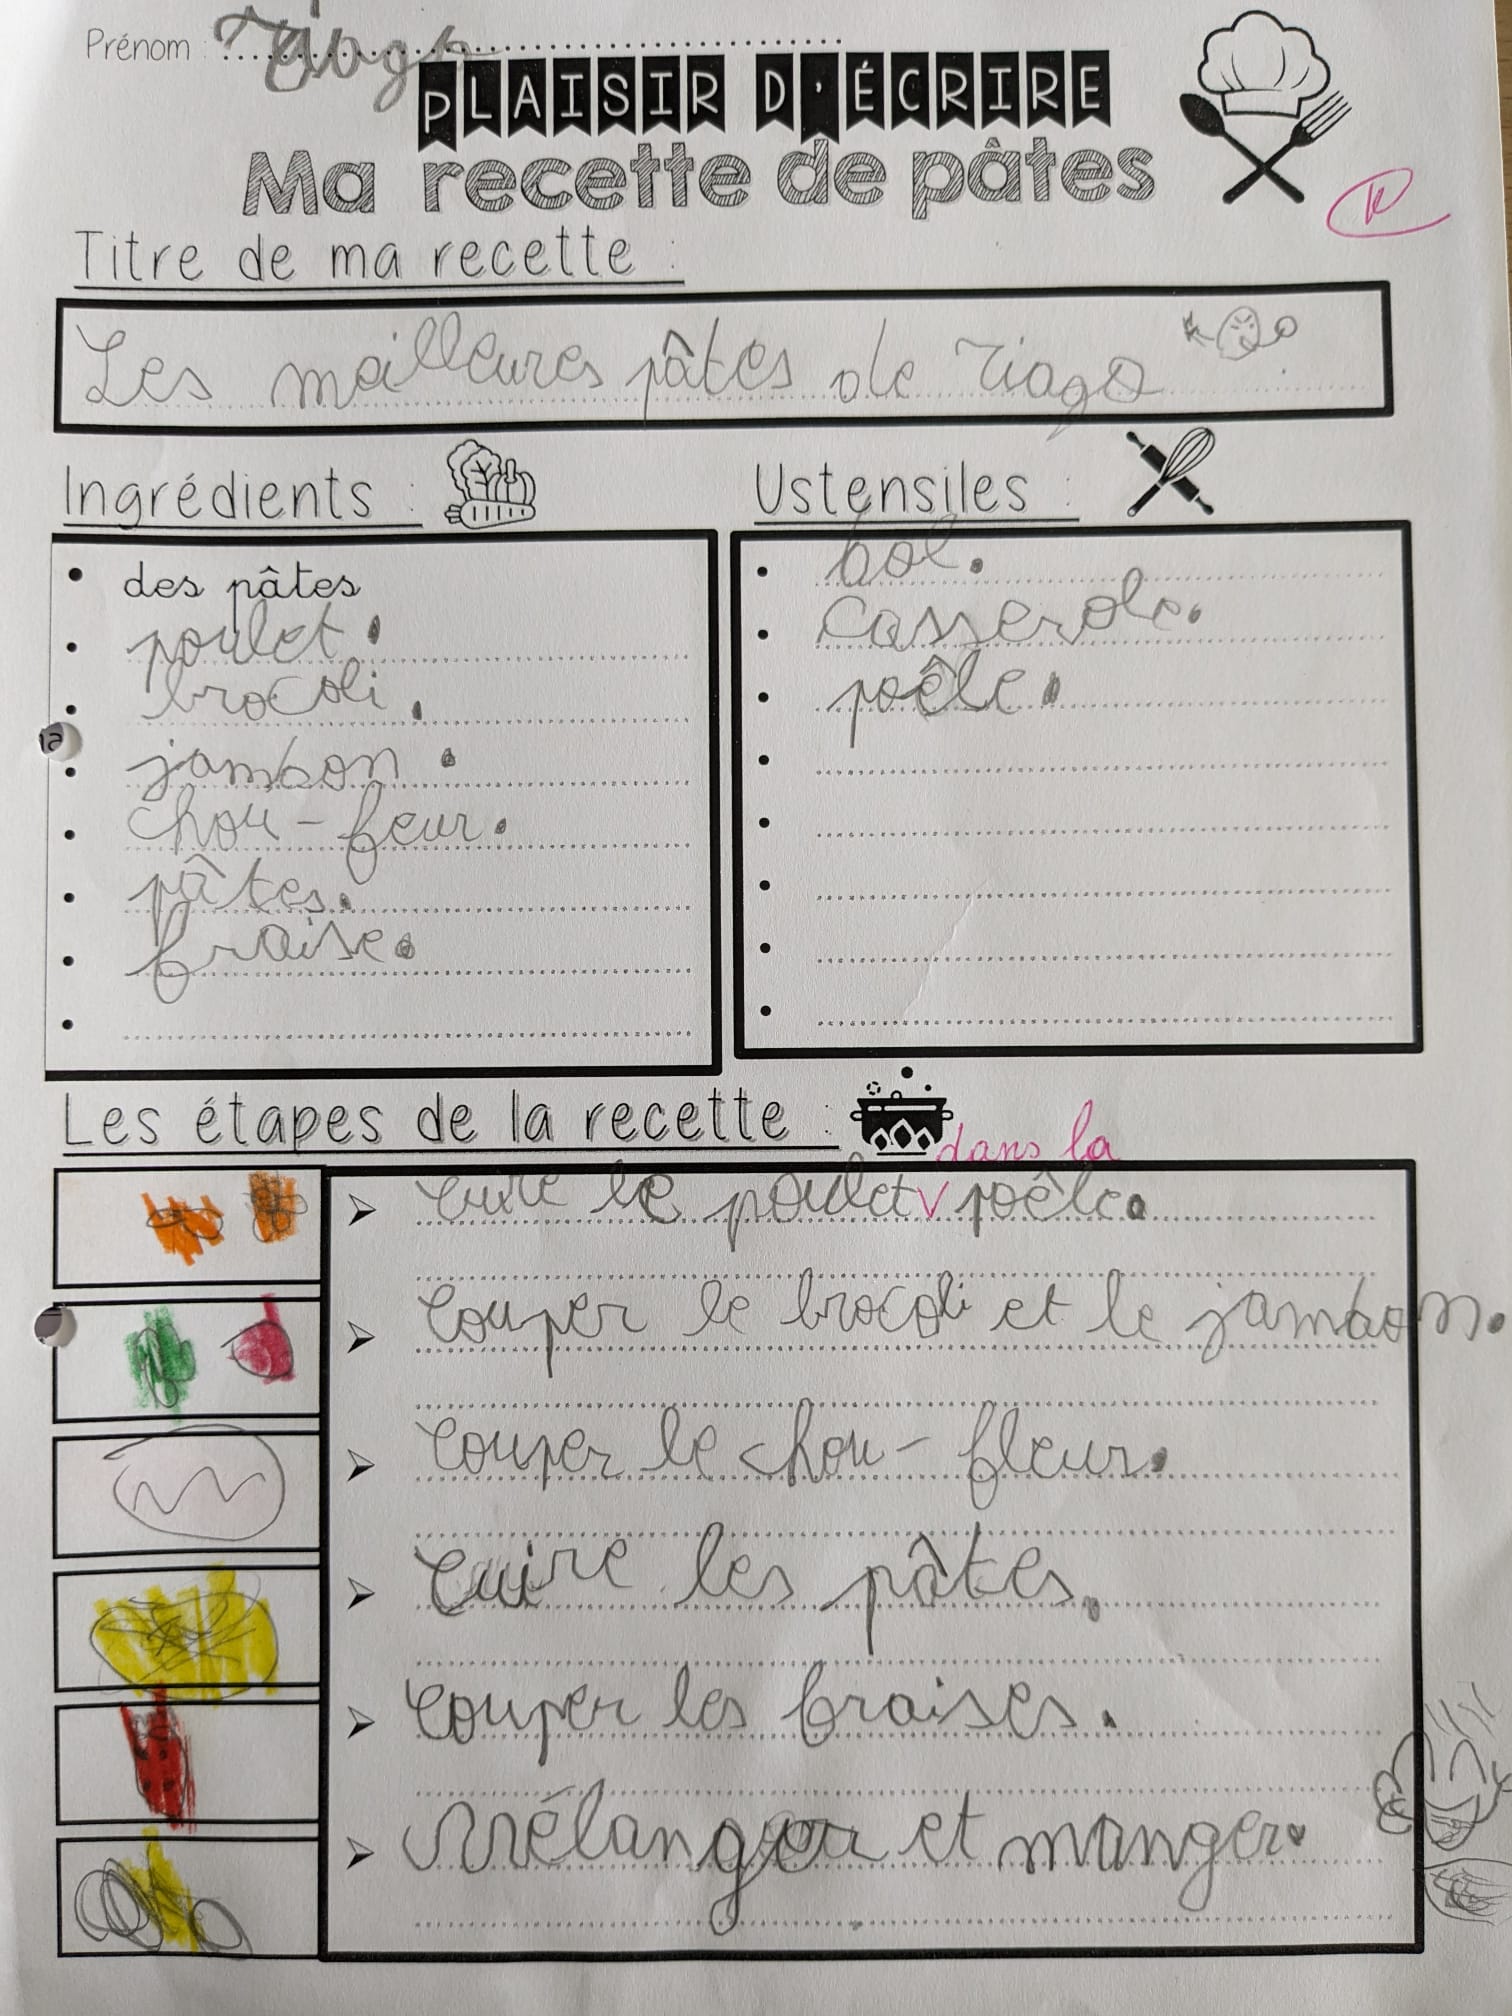 Prénom : Tiago
PLAISIR D'ÉCRIRE
Ma recette de pâtes
Titre de ma recette :
Les meilleures pâtes de Tiago
Ingrédients :
• des pâtes
• poulet.
• brocoli.
• jambon.
• chou-feur.
• pâtes.
• fraise.
•
Ustensiles :
• bol.
• casserole.
• poêle.
•
•
•
•
•
Les étapes de la recette :
dans la
➤ Cuire le poulet V poêle.
➤ Couper le brocoli et le jambon.
➤ Couper le chou-fleur.
➤ Cuire les pâtes.
➤ Couper les fraises.
➤ Mélanger et manger.